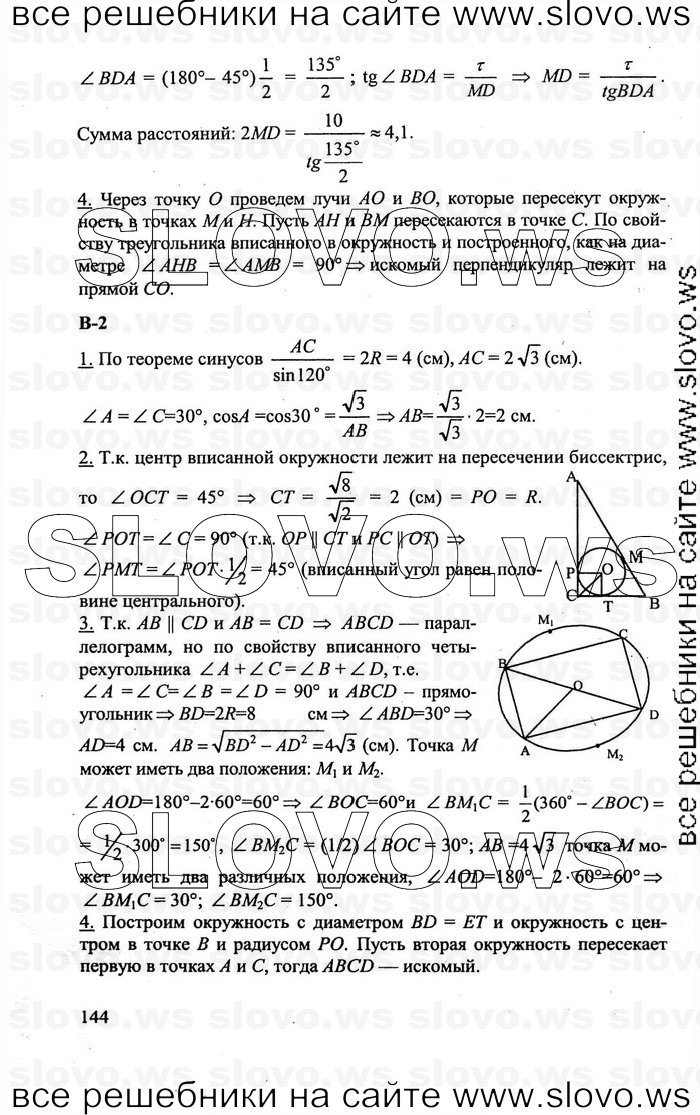 все решебники на сайте www.slovo.ws
∠ BDA = (180°– 45°) 1/2 = 135°/2 ; tg∠ BDA = τ/MD ⇒ MD = τ/tgBDA .
Сумма расстояний: 2MD = 10/(tg 135°/2) ≈ 4,1.
4. Через точку O проведем лучи AO и BO, которые пересекут окруж-
ность в точках M и H. Пусть AH и BM пересекаются в точке C. По свой-
ству треугольника вписанного в окружность и построенного, как на диа-
метре ∠ AHB = ∠ AMB = 90° ⇒ искомый перпендикуляр лежит на
прямой CO.
В-2
1. По теореме синусов AC/sin120° = 2R = 4 (см), AC = 2√3 (см).
∠ A = ∠ C=30°, cosA =cos30° = √3/AB ⇒ AB= √3/√3 · 2=2 см.
2. Т.к. центр вписанной окружности лежит на пересечении биссектрис,
то ∠ OCT = 45° ⇒ CT = √8/√2 = 2 (см) = PO = R.
∠ POT = ∠ C = 90° (т.к. OP || CT и PC || OT) ⇒
∠ PMT = ∠ POT · 1/2 = 45° (вписанный угол равен поло-
вине центрального).
A
P
O
M
C
T
B
3. Т.к. AB || CD и AB = CD ⇒ ABCD — парал-
лелограмм, но по свойству вписанного четы-
рехугольника ∠ A + ∠ C = ∠ B + ∠ D, т.е.
∠ A = ∠ C= ∠ B = ∠ D = 90° и ABCD – прямо-
угольник ⇒ BD=2R=8 см ⇒ ∠ ABD=30° ⇒
AD=4 см. AB = √(BD² – AD²) =4√3 (см). Точка M
может иметь два положения: M₁ и M₂.
M₁
C
B
O
D
A
M₂
∠ AOD=180°–2·60°=60° ⇒ ∠ BOC=60°и ∠ BM₁C = 1/2(360° – ∠BOC) =
= 1/2 · 300° = 150°, ∠ BM₂C = (1/2) ∠ BOC = 30°; AB =4√3 точка M мо-
жет иметь два различных положения, ∠ AOD=180°– 2·60°=60° ⇒
∠ BM₁C = 30°; ∠ BM₂C = 150°.
4. Построим окружность с диаметром BD = ET и окружность с цен-
тром в точке B и радиусом PO. Пусть вторая окружность пересекает
первую в точках A и C, тогда ABCD — искомый.
144
все решебники на сайте www.slovo.ws
все решебники на сайте www.slovo.ws
SLOVO.ws
SLOVO.ws
SLOVO.ws